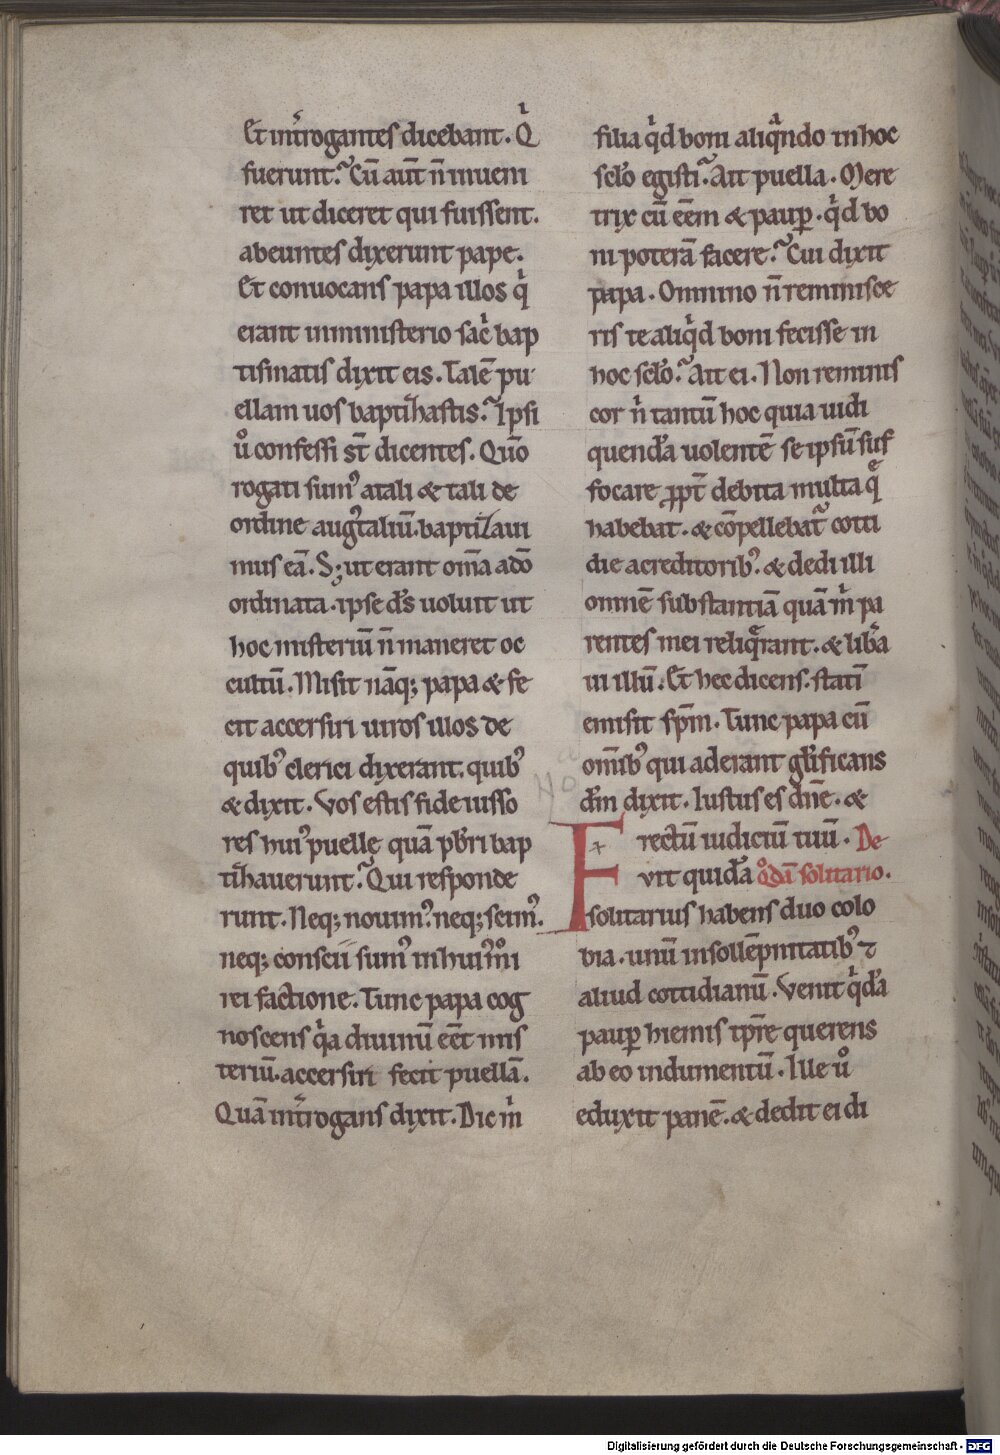 Et int̄rogantes dicebant. Qͥ
fuerunt? Cū aut̄ n̄ inueni
ret ut diceret qui fuissent.
abeuntes dixerunt pape.
Et conuocans papa illos qͥ
erant in ministerio sac̄ bap
tismatis dixit eis. Talē pu
ellam uos baptizastis? Ipsi
uͦ confessi st̄ dicentes. Quō
rogati sumꝰ a tali & tali de
ordine augͭtaliū. baptizaui
mus eā. S; ut erant om̄a a dō
ordinata. ipse d̄s uoluit ut
hoc misteriū n̄ maneret oc
cultū. Misit nāq; papa & fe
cit accersiri uiros illos de
quibꝰ clerici dixerant. quibꝰ
& dixit. Vos estis fideiusso
res huiꝰ puelle quā p̄bri bap
tizauerunt? Qui responde
runt. Neq; nouimꝰ. neq; scimꝰ.
neq; conscii sumꝰ in huiꝰmōi
rei factione. Tunc papa cog
noscens qͥa diuinū eēt mis
teriū. accersiri fecit puellā.
Quā int̄rogans dixit. Dic mͥ
filia qͥd boni aliqͣndo in hoc
sc̄lo egisti? Ait puella. Mere
trix cū eēm & paup̄. qͥd bo
ni poterā facere? Cui dixit
papa. Omnino n̄ reminisce
ris te aliqͥd boni fecisse in
hoc sc̄lo? Ait ei. Non reminis
cor nͥ tantū hoc quia uidi
quendā uolentē se ipsū suf
focare ꝓpt̄ debita multa qͤ
habebat. & cōpellebat᷑ cotti
die a creditoribꝰ. & dedi illi
omnē substantiā quā mͥ pa
rentes mei reliqͤrant. & libͣa
ui illū. Et hec dicens. statī
emisit sp̄m. Tunc papa cū
om̄ibꝰ qui aderant gl̄ificans
d̄m dixit. Iustus es dn̄e. &
rectū iudiciū tuū. De
Fvit quidā qͦdā solitario.
solitarius habens duo colo
bia. unū in sollēpnitatibꝰ ⁊
aliud cottidianū. Venit qͥdā
paup̄ hiemis tp̄re querens
ab eo indumentū. Ille uͦ
eduxit panē. & dedit ei di
Digitalisierung gefördert durch die Deutsche Forschungsgemeinschaft - DFG